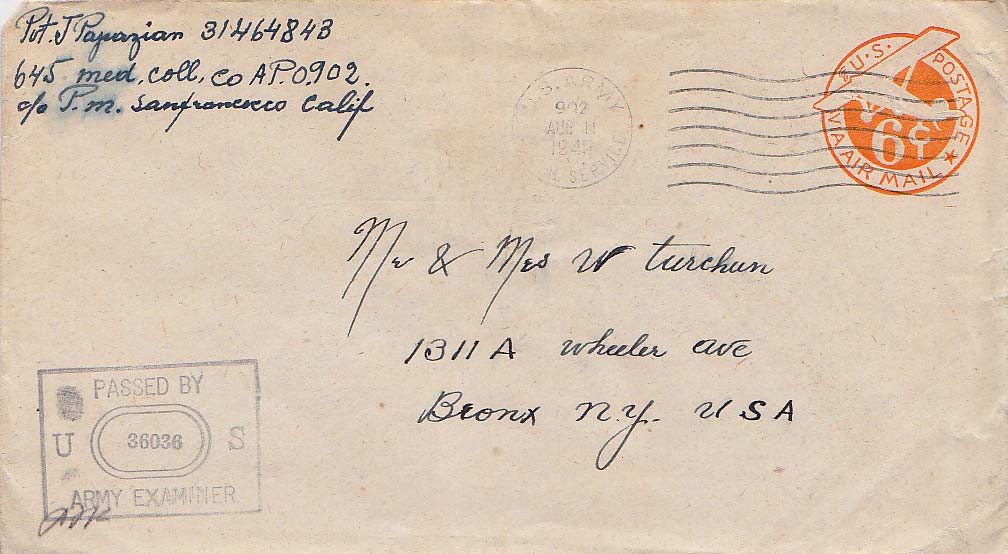 Pvt. J Papazian 31464843
645 med. coll. co A.P.O 902.
c/o P.m. Sanfrancisco Calif
U.S. ARMY
902
AUG 11
SERVICE
U.S. POSTAGE
6¢
VIA AIR MAIL
Mr & Mrs W Turchun
1311 A Wheeler ave
Bronx N.Y. U S A
PASSED BY
U 36036 S
ARMY EXAMINER